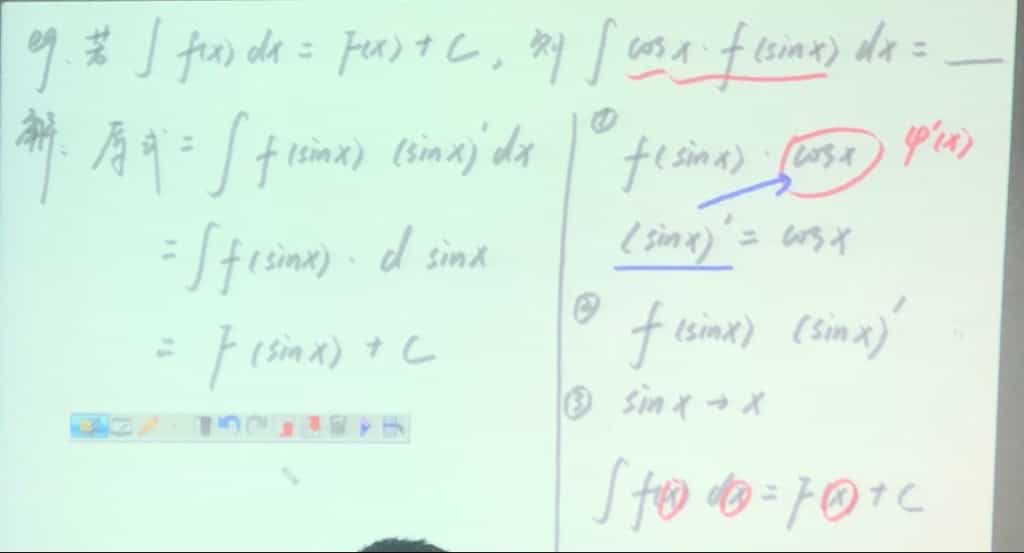 例. 若 ∫ f(x) dx = F(x) + C, 则 ∫ cosx · f(sinx) dx = ___
解: 原式 = ∫ f(sinx) (sinx)' dx
= ∫ f(sinx) · d sinx
= F(sinx) + C
① f(sinx) · cosx φ'(x)
(sinx)' = cosx
② f(sinx) (sinx)'
③ sinx → x
∫ f(x) dx = F(x) + C